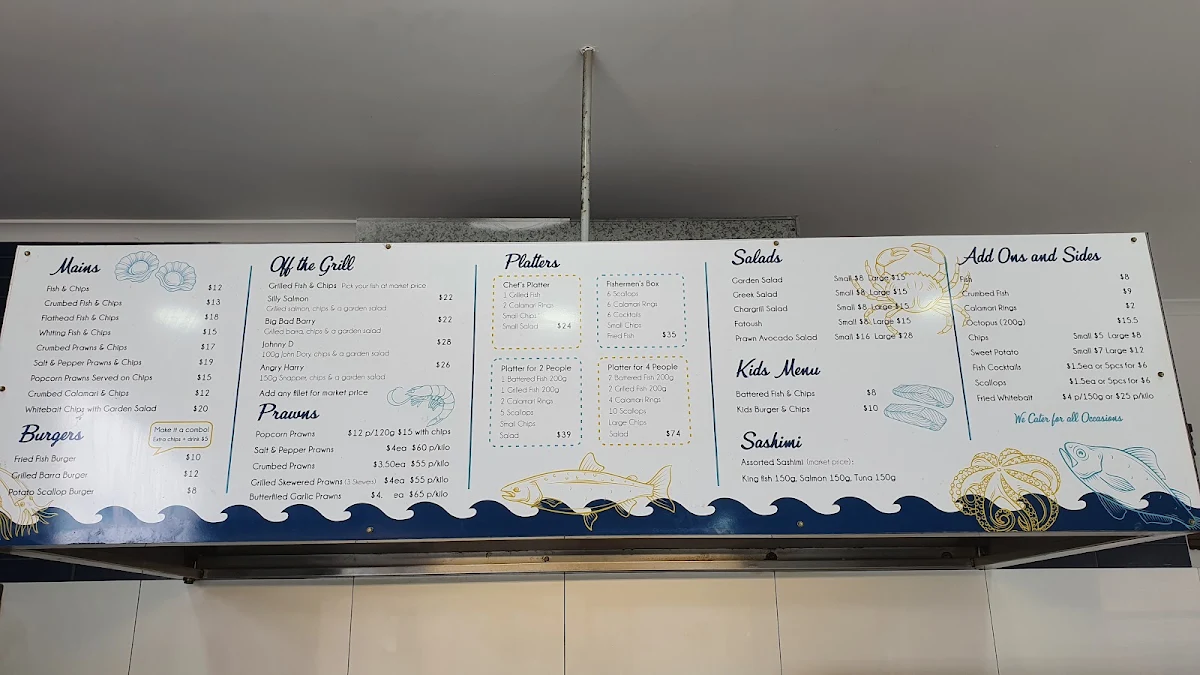 Mains
Fish & Chips $12
Crumbed Fish & Chips $13
Flathead Fish & Chips $18
Whiting Fish & Chips $15
Crumbed Prawns & Chips $17
Salt & Pepper Prawns & Chips $19
Popcorn Prawns Served on Chips $15
Crumbed Calamari & Chips $12
Whitebait Chips with Garden Salad $20
Burgers
Make it a combo!
Extra chips + drink $5
Fried Fish Burger $10
Grilled Barra Burger $12
Potato Scallop Burger $8
Off the Grill
Grilled Fish & Chips Pick your fish at market price
Silly Salmon $22
Grilled salmon, chips & a garden salad
Big Bad Barry $22
Grilled barra, chips & a garden salad
Johnny D $28
100g John Dory, chips & a garden salad
Angry Harry $26
150g Snapper, chips & a garden salad
Add any fillet for market price
Prawns
Popcorn Prawns $12 p/120g $15 with chips
Salt & Pepper Prawns $4ea $60 p/kilo
Crumbed Prawns $3.50ea $55 p/kilo
Grilled Skewered Prawns (3 Skewers) $4ea $55 p/kilo
Butterflied Garlic Prawns $4. ea $65 p/kilo
Platters
Chef's Platter
1 Grilled Fish
2 Calamari Rings
Small Chips
Small Salad $24
Fishermen's Box
6 Scallops
6 Calamari Rings
6 Cocktails
Small Chips
Fried Fish $35
Platter for 2 People
1 Battered Fish 200g
1 Grilled Fish 200g
2 Calamari Rings
5 Scallops
Small Chips
Salad $39
Platter for 4 People
2 Battered Fish 200g
2 Grilled Fish 200g
4 Calamari Rings
10 Scallops
Large Chips
Salad $74
Salads
Garden Salad Small $8 Large $15
Greek Salad Small $8 Large $15
Chargrill Salad Small $8 Large $15
Fatoush Small $8 Large $15
Prawn Avocado Salad Small $16 Large $28
Kids Menu
Battered Fish & Chips $8
Kids Burger & Chips $10
Sashimi
Assorted Sashimi (market price):
King fish 150g, Salmon 150g, Tuna 150g
Add Ons and Sides
Fish $8
Crumbed Fish $9
Calamari Rings $2
Octopus (200g) $15.5
Chips Small $5 Large $8
Sweet Potato Small $7 Large $12
Fish Cocktails $1.5ea or 5pcs for $6
Scallops $1.5ea or 5pcs for $6
Fried Whitebait $4 p/150g or $25 p/kilo
We Cater for all Occasions